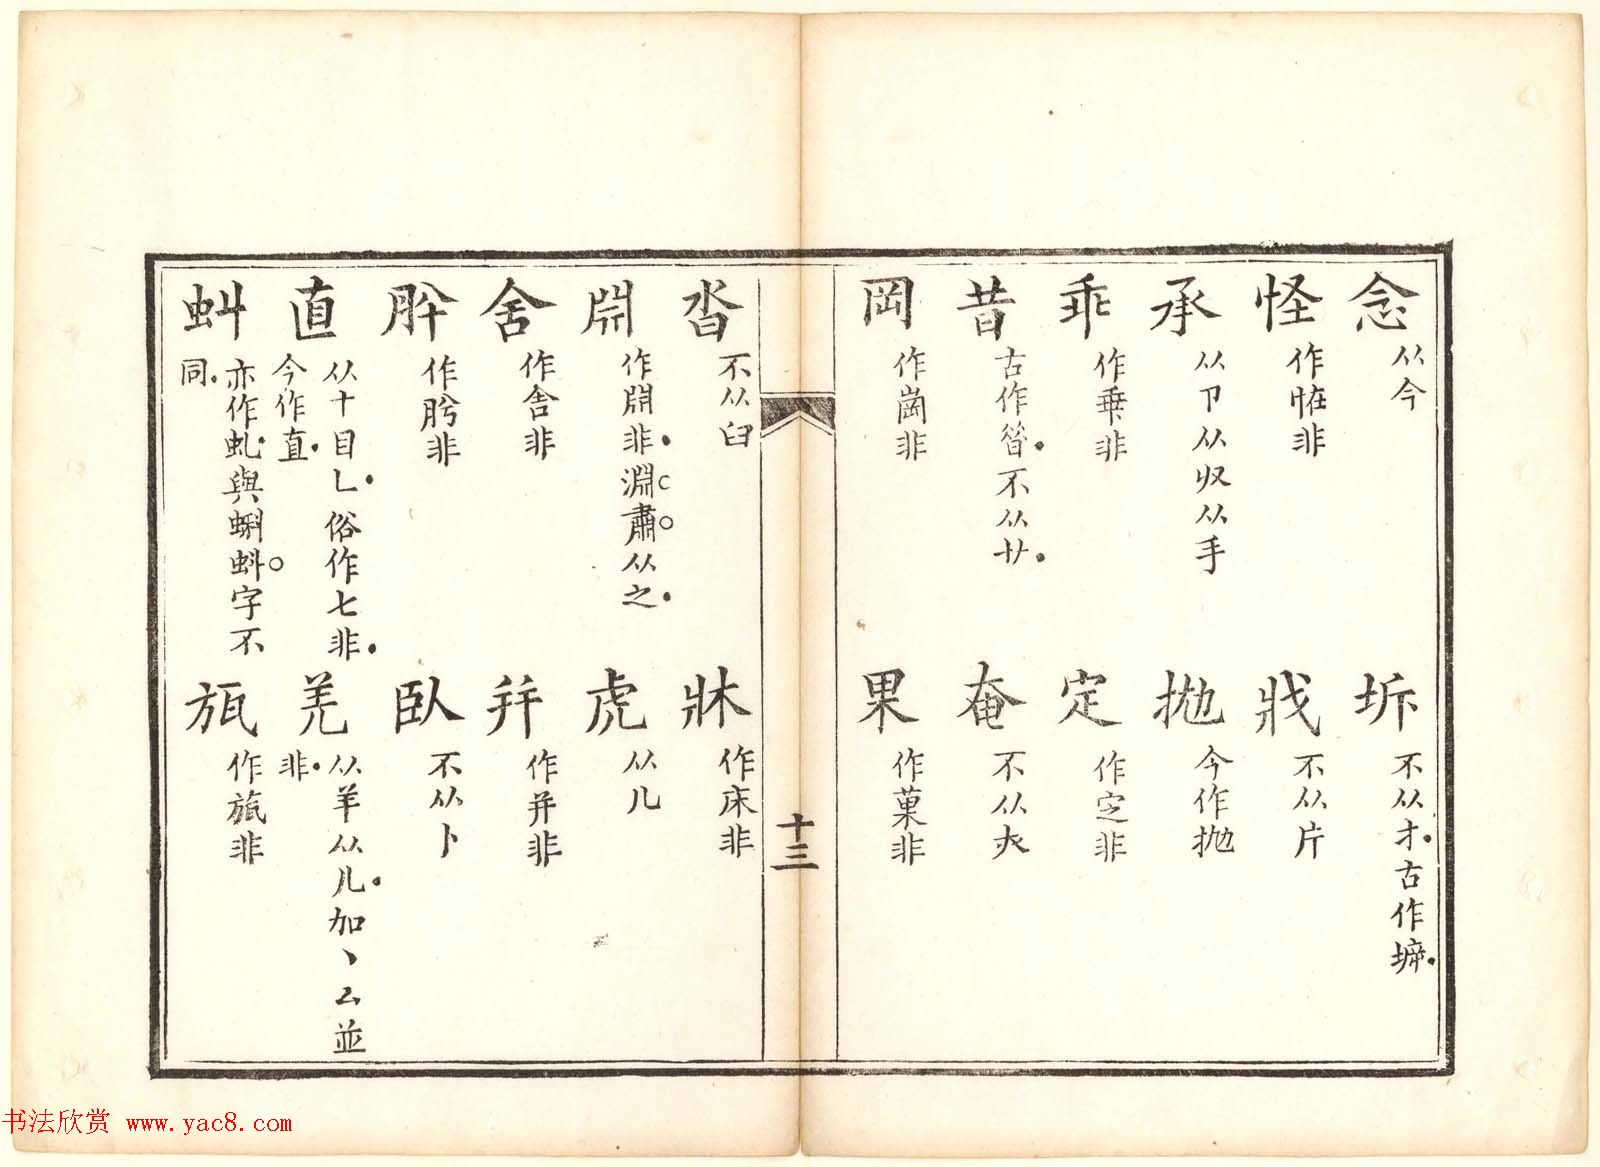 念 从今
坼 不从才古作㙤
怪 作恠非
戕 不从片
承 从卩从収从手
抛 今作抛
乖 作乗非
定 作㝎非
昔 古作㫺不从廿
奄 不从大
岡 作崗非
果 作菓非
十三
沓 不从臼
牀 作床非
𣶒 作𣶒非淵肅从之
虎 从儿
舍 作舎非
并 作并非
肸 作肹非
臥 不从卜
直 从十目乚俗作七非今作直
羌 从羊从儿加丶厶並非
虯 亦作虬與蝌蚪字不同
瓬 作旊非
书法欣赏 www.yac8.com